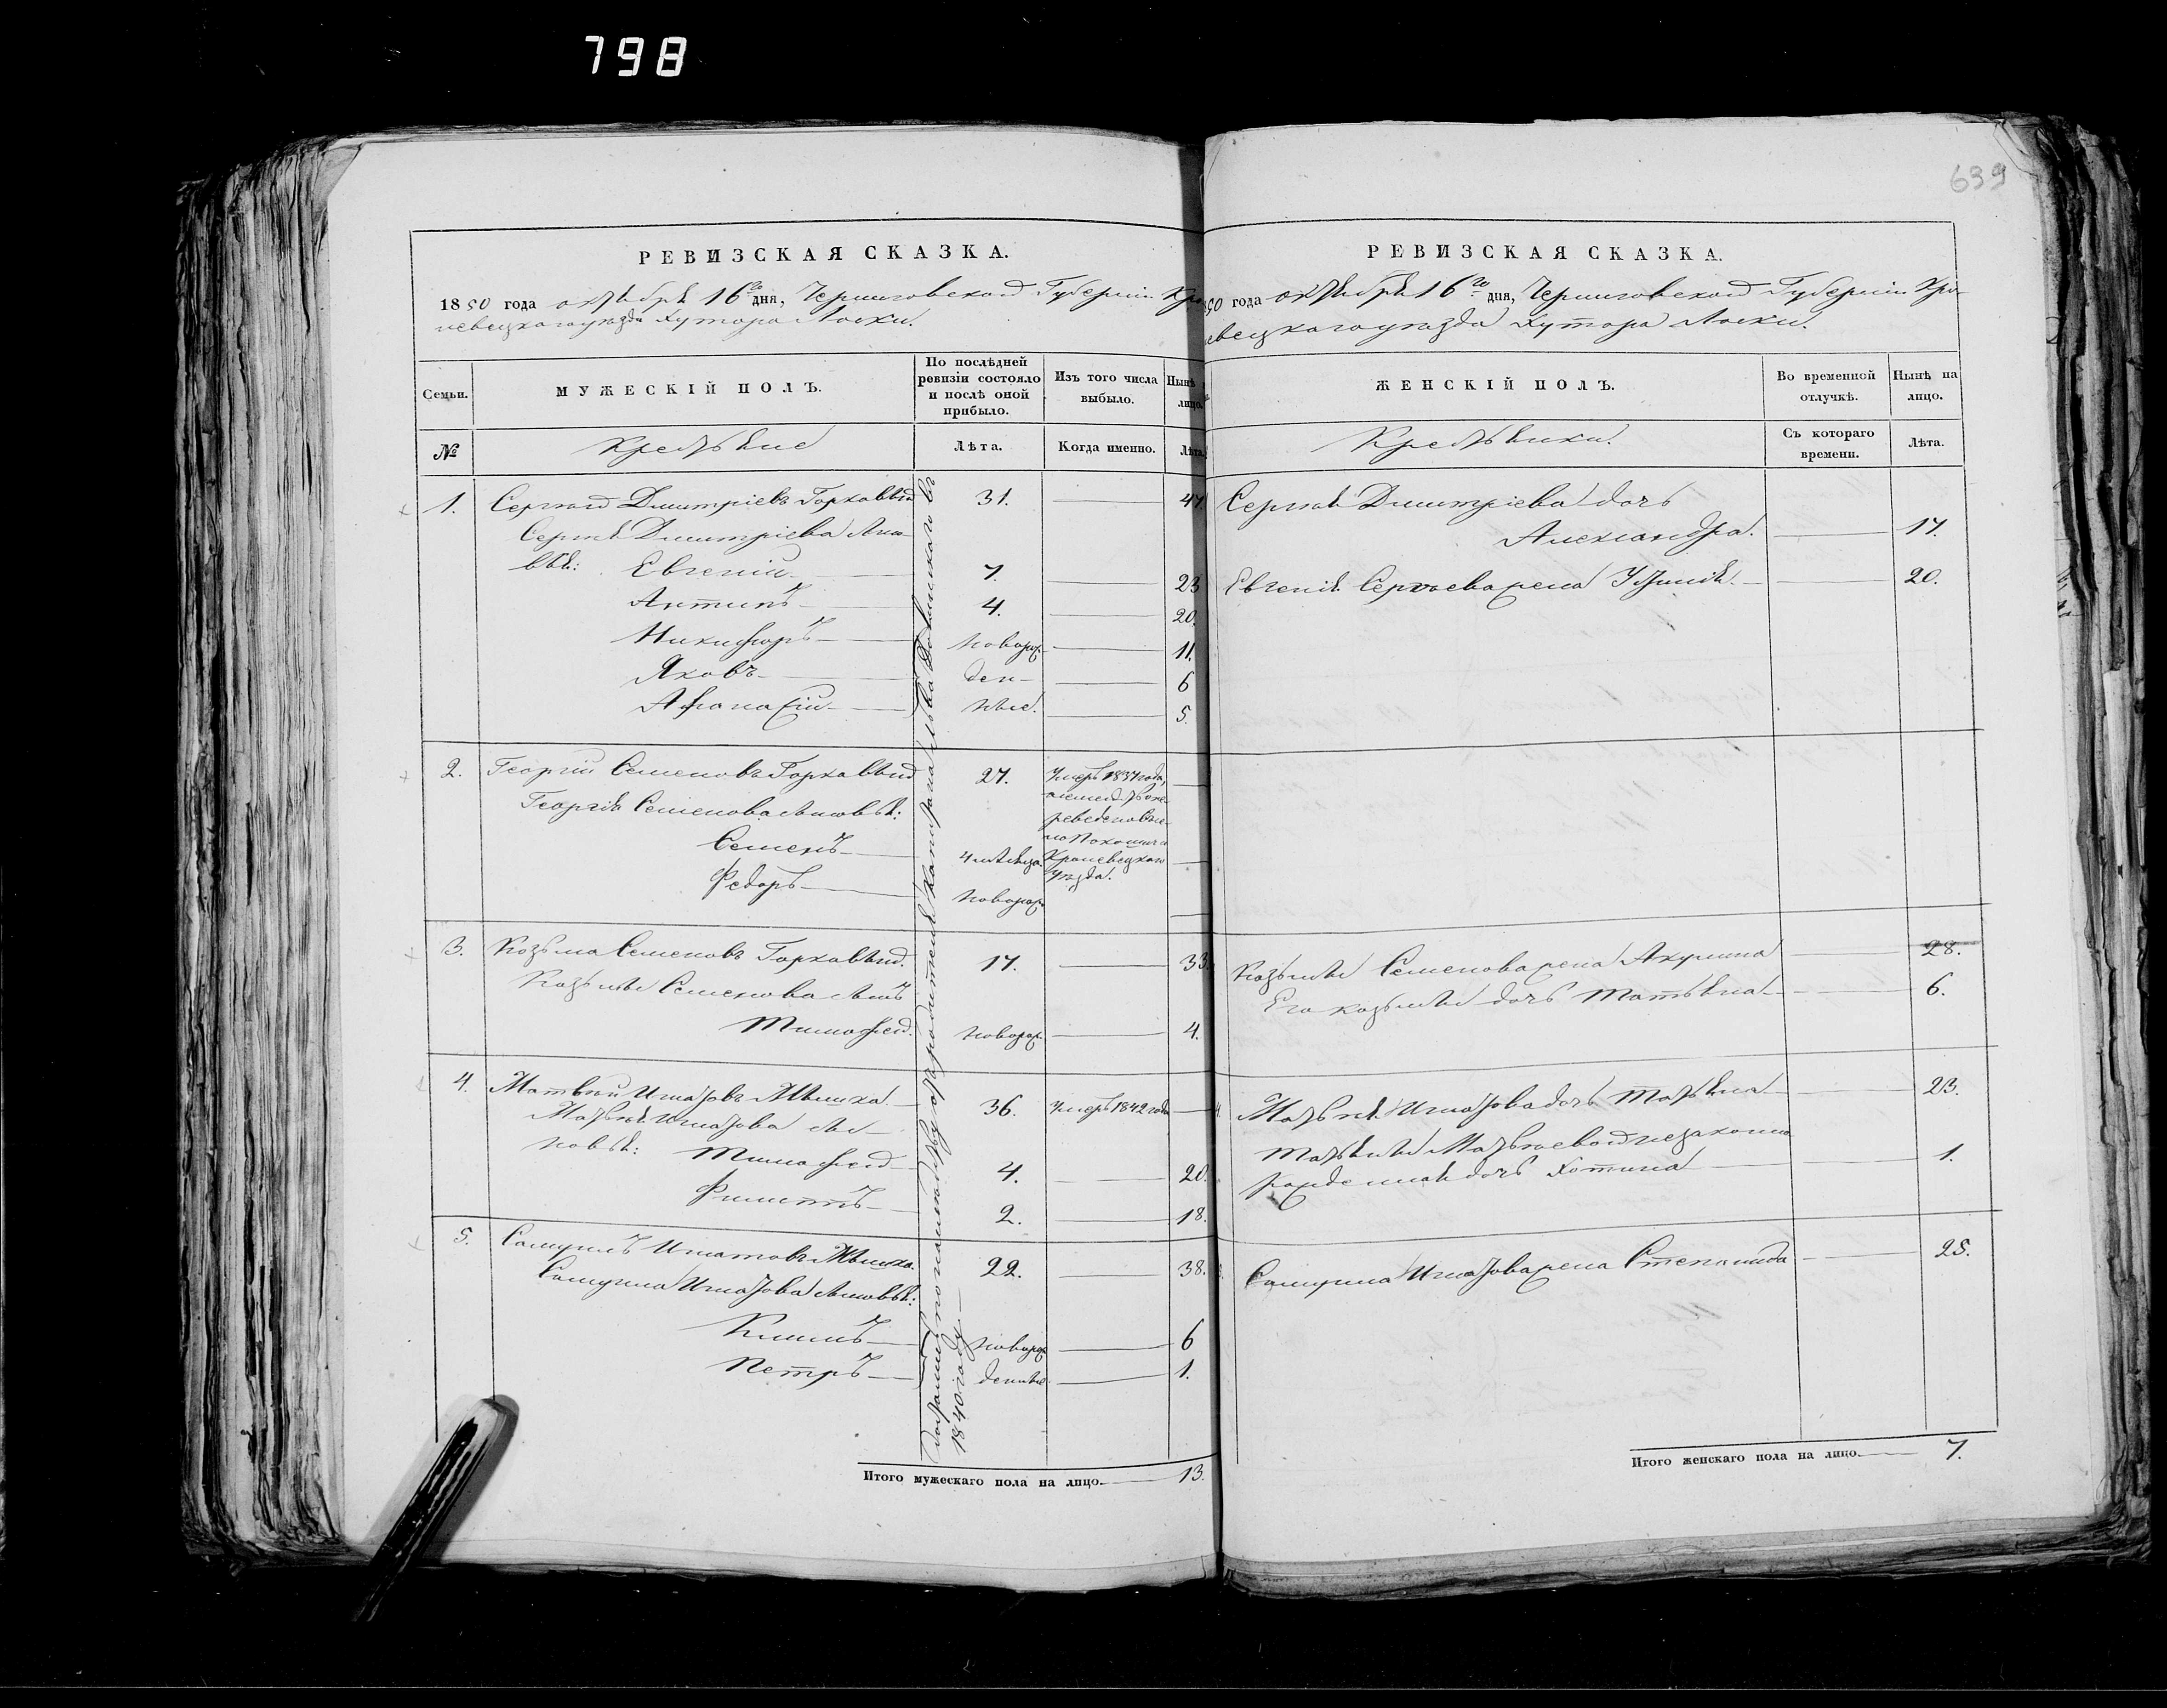 798
639
РЕВИЗСКАЯ СКАЗКА.
1850 года октября 16го дня, Черниговской Губернии Кро-
левецкаго уезда Хутора Лоски.
Семьи.
МУЖЕСКІЙ ПОЛЪ.
По послѣдней
ревизіи состояло
и послѣ оной
прибыло.
Изъ того числа
выбыло.
Нынѣ
лицо.
№
Крестьяне
Лѣта.
Когда именно.
Лѣта.
1. Сергей Димитріевъ Горковый 31. 47
Сергея Димитріева сыно-
вья: Евгений 7. 23
Антипъ 4. 20.
Никифоръ новорож- 11.
Яковъ ден- 6
Афанасій ные. 5.
2. Георгій Семеновъ Горковый 27. Умеръ 1837 года,
Георгія Семенова сыновья:
Семенъ
Федоръ новорож.
Кролевецкаго
уезда.
3. Козьма Семеновъ Горковый. 17. 33.
Козьмы Семенова сынъ
Тимофей. новорож. 4.
4. Матвѣй Игнатовъ Мышка 36. Умеръ 1842 года
Матвѣя Игнатова сы-
новья: Тимофей 4. 20.
Филиппъ 2. 18.
5. Самуилъ Игнатовъ Мышка. 22. 38.
Самуила Игнатова сыновья:
Климъ новорож 6
Петръ денные. 1.
1840 году.
Итого мужескаго пола на лицо. 13.
РЕВИЗСКАЯ СКАЗКА.
1850 года октября 16го дня, Черниговской Губернии Кро-
левецкаго уезда Хутора Лоски.
ЖЕНСКІЙ ПОЛЪ.
Во временной
отлучкѣ.
Нынѣ на
лицо.
Крестьянки.
Съ котораго
времени.
Лѣта.
Сергея Димитріева дочь
Александра. 17.
Евгения Сергеева жена Ульяна. 20.
Козьмы Семенова жена Акулина 28.
Его Козьмы дочь Татьяна 6.
Матвѣя Игнатова дочь Татьяна 23.
Татьяны Матвеевой незаконно
рожденная дочь 1.
Самуила Игнатова жена Степанида 25.
Итого женскаго пола на лицо. 7.